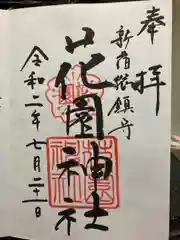 奉拝
新宿総鎮守
花園神社
令和二年七月二十一日